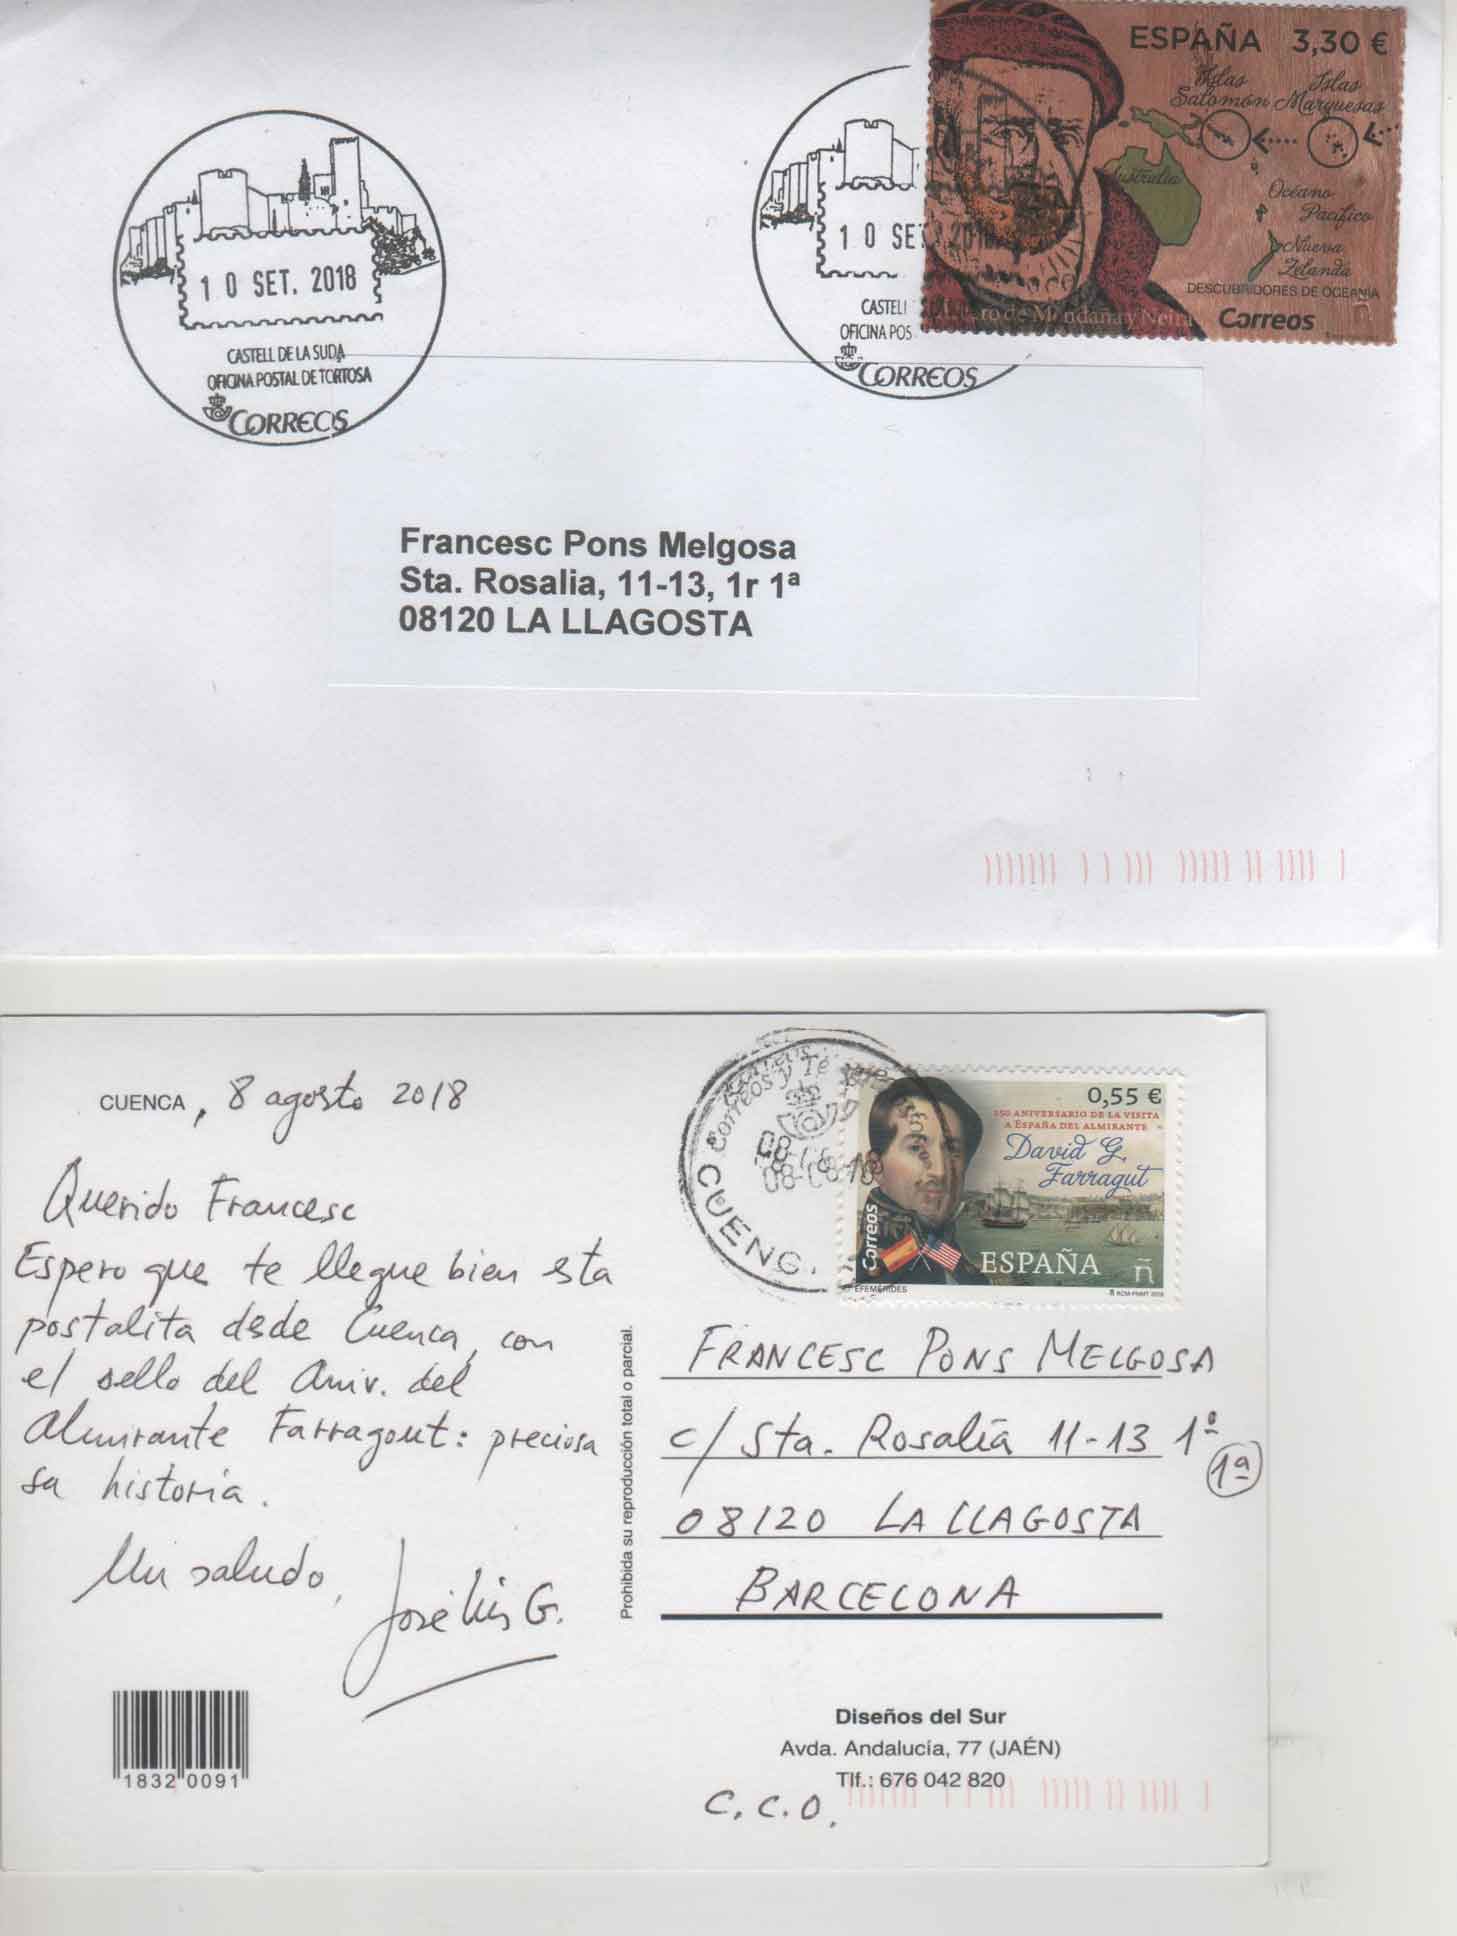 ESPAÑA 3,30 €
Islas Salomón
Islas Marquesas
Australia
Océano Pacífico
Nueva Zelanda
DESCUBRIDORES DE OCEANÍA
de Mendaña y Neira
Correos
10 SET. 2018
CASTELL DE LA SUDA
OFICINA POSTAL DE TORTOSA
CORREOS
10 SET. 2018
CASTELL
OFICINA POS
CORREOS
Francesc Pons Melgosa
Sta. Rosalia, 11-13, 1r 1ª
08120 LA LLAGOSTA
CUENCA, 8 agosto 2018
Querido Francesc
Espero que te llegue bien esta
postalita desde Cuenca, con
el sello del Aniv. del
Almirante Farragout: preciosa
su historia.
Un saludo,
José Luis G.
1832 0091
Prohibida su reproducción total o parcial.
Correos y Te
08-08-18
CUENC
0,55 €
150 ANIVERSARIO DE LA VISITA
A ESPAÑA DEL ALMIRANTE
David G.
Farragut
Correos
ESPAÑA
ñ
EFEMÉRIDES
RCM-FNMT 2018
FRANCESC PONS MELGOSA
c/ Sta. Rosalía 11-13 1º
1ª
08120 LA LLAGOSTA
BARCELONA
Diseños del Sur
Avda. Andalucía, 77 (JAÉN)
Tlf.: 676 042 820
C.C.O.